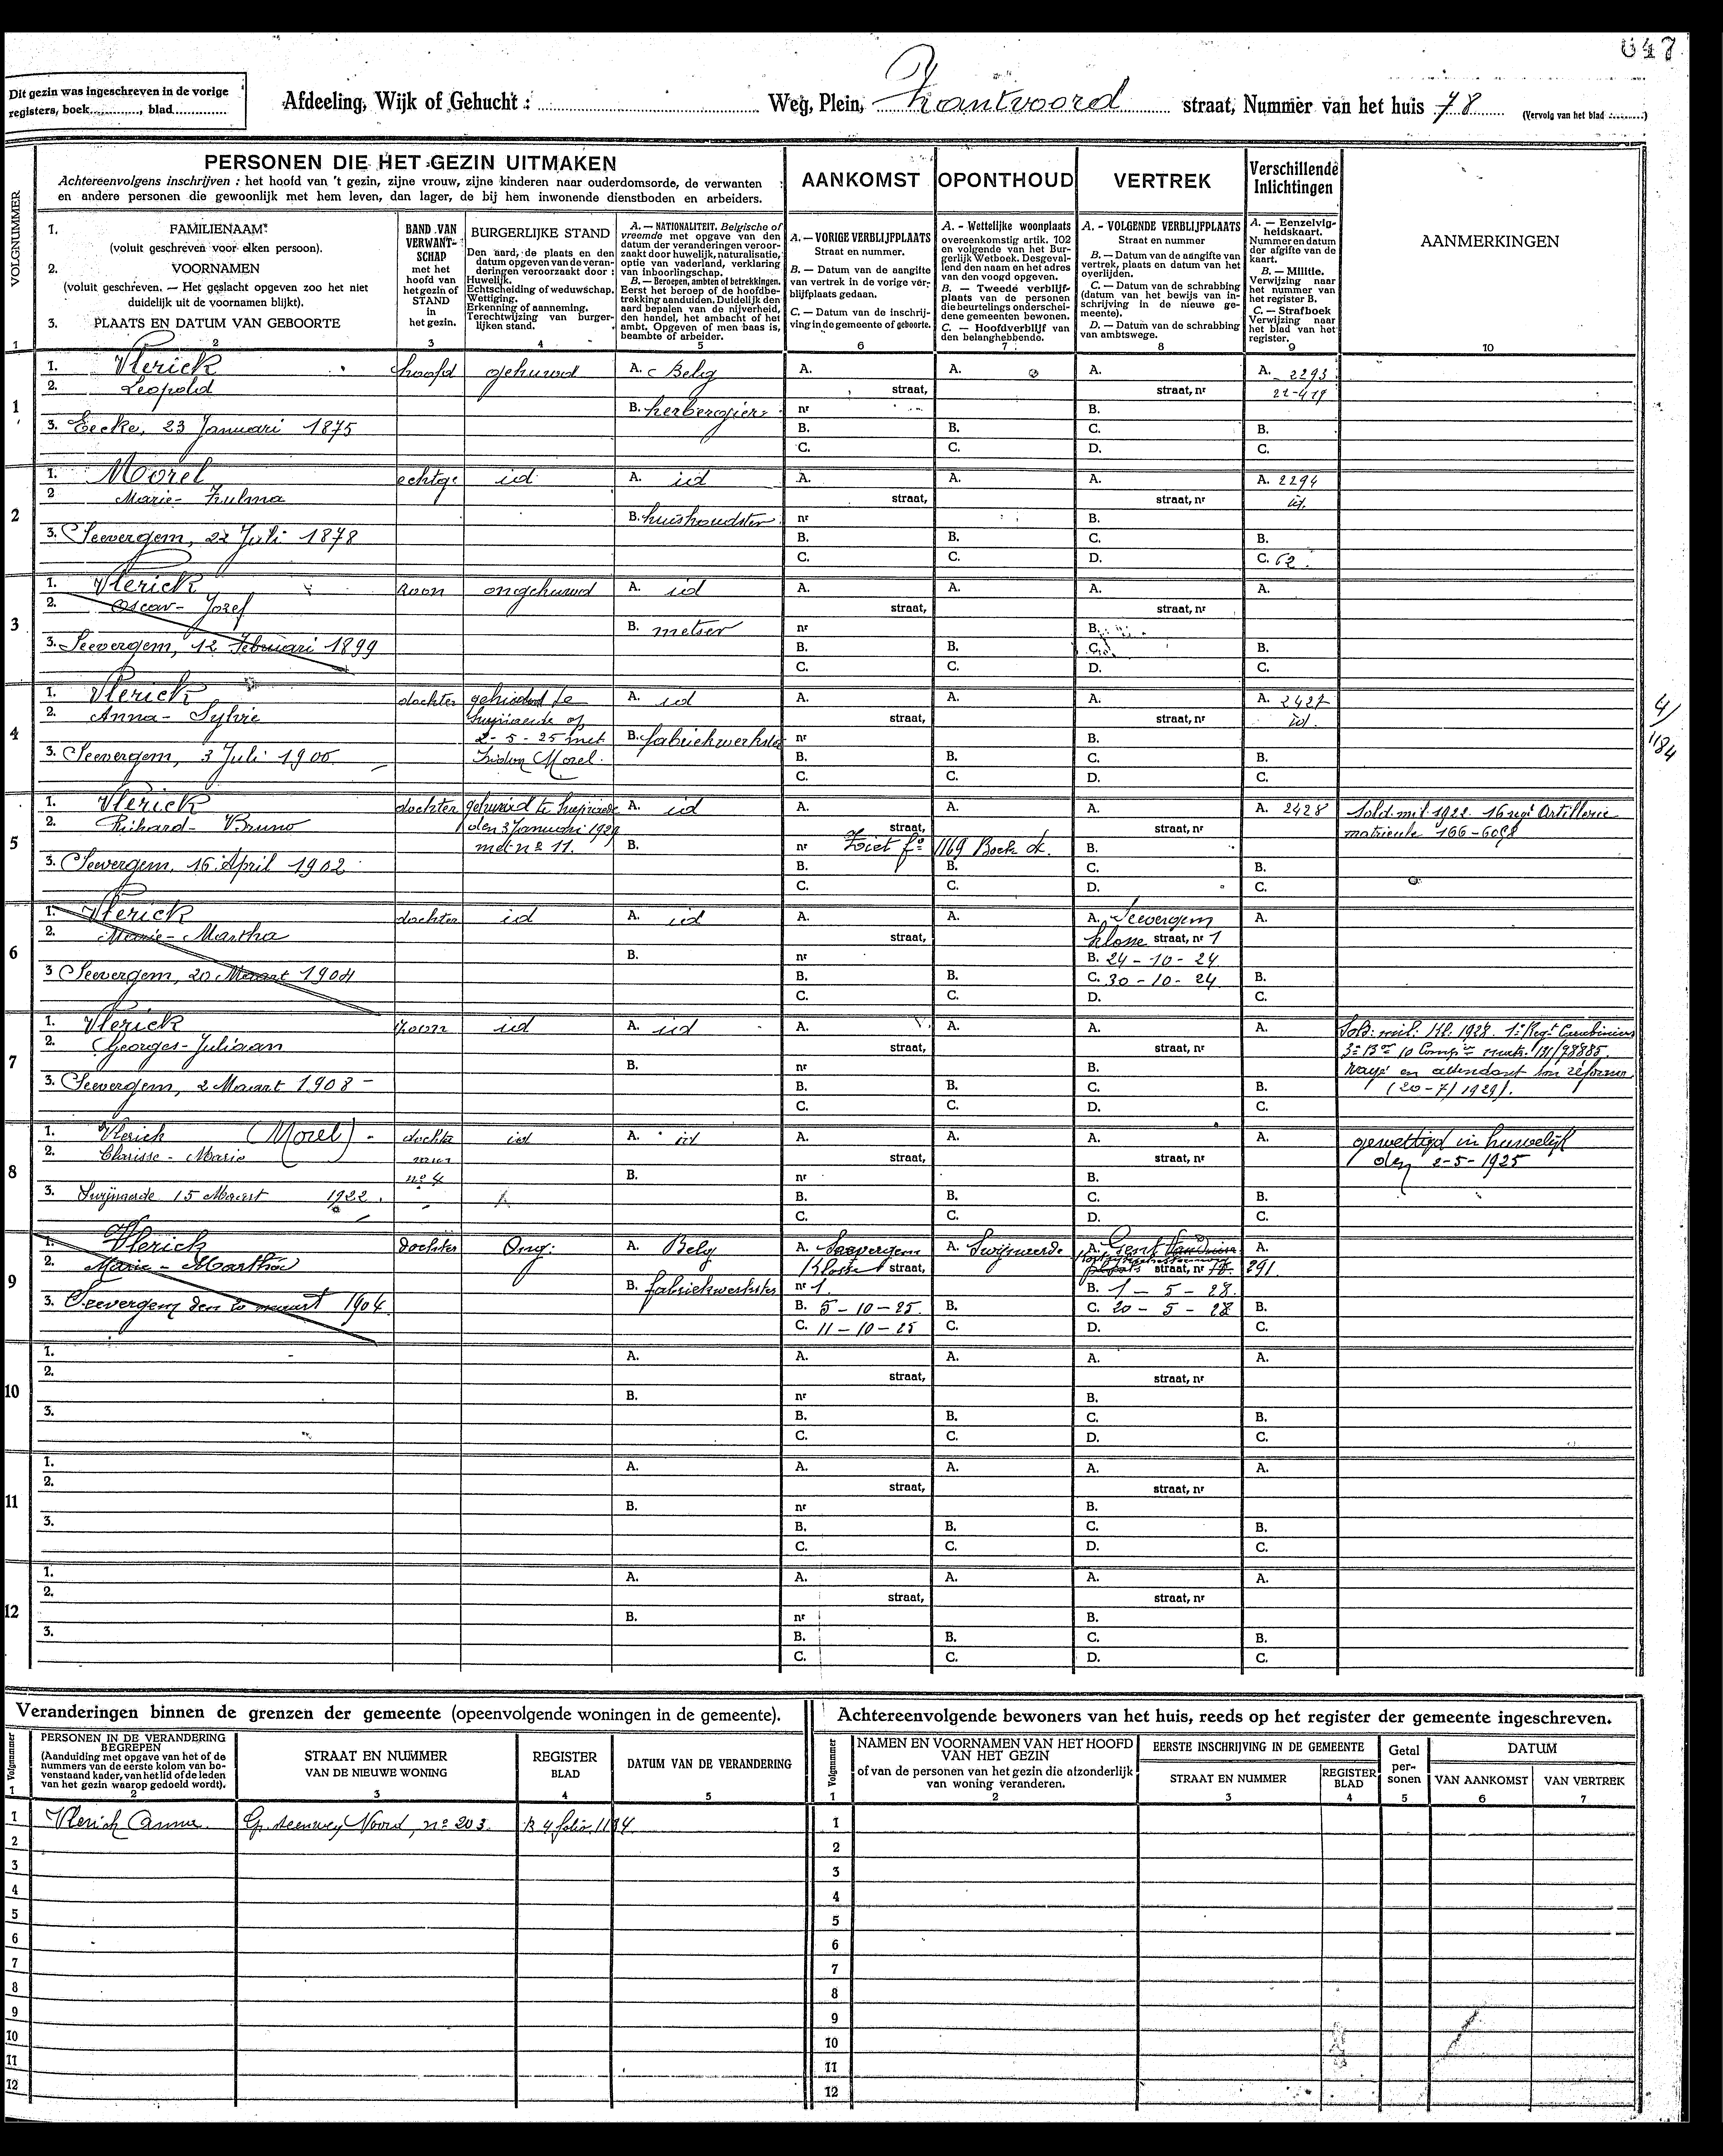 047
Dit gezin was ingeschreven in de vorige
registers, boek............, blad..............
Afdeeling, Wijk of Gehucht : Weg, Plein, Zantvoord straat, Nummer van het huis 78 (Vervolg van het blad .........)
VOLGNUMMER
PERSONEN DIE HET GEZIN UITMAKEN
Achtereenvolgens inschrijven : het hoofd van 't gezin, zijne vrouw, zijne kinderen naar ouderdomsorde, de verwanten
en andere personen die gewoonlijk met hem leven, dan lager, de bij hem inwonende dienstboden en arbeiders.
AANKOMST
OPONTHOUD
VERTREK
Verschillende
Inlichtingen
1. FAMILIENAAM
(voluit geschreven voor elken persoon).
2. VOORNAMEN
(voluit geschreven. — Het geslacht opgeven zoo het niet
duidelijk uit de voornamen blijkt).
3. PLAATS EN DATUM VAN GEBOORTE
BAND VAN
VERWANT-
SCHAP
met het
hoofd van
het gezin of
STAND
in
het gezin.
BURGERLIJKE STAND
Den aard, de plaats en den
datum opgeven van de veran-
deringen veroorzaakt door :
Huwelijk.
Echtscheiding of weduwschap.
Wettiging.
Erkenning of aanneming.
Terechtwijzing van burger-
lijken stand.
A. — NATIONALITEIT, Belgische of
vreemde met opgave van den
datum der veranderingen veroor-
zaakt door huwelijk, naturalisatie,
optie van vaderland, verklaring
van inboorlingschap.
B. — Beroepen, ambten of betrekkingen.
Eerst het beroep of de hoofdbe-
trekking aanduiden. Duidelijk den
aard bepalen van de nijverheid,
den handel, het ambacht of het
ambt. Opgeven of men baas is,
beambte of arbeider.
A. — VORIGE VERBLIJFPLAATS
Straat en nummer.
B. — Datum van de aangifte
van vertrek in de vorige ver-
blijfplaats gedaan.
C. — Datum van de inschrij-
ving in de gemeente of geboorte.
A. - Wettelijke woonplaats
overeenkomstig artik. 102
en volgende van het Bur-
gerlijk Wetboek. Desgeval-
lend den naam en het adres
van den voogd opgeven.
B. — Tweede verblijf-
plaats van de personen
die beurtelings onderschei-
dene gemeenten bewonen.
C. — Hoofdverblijf van
den belanghebbende.
A. - VOLGENDE VERBLIJFPLAATS
Straat en nummer
B. — Datum van de aangifte van
vertrek, plaats en datum van het
overlijden.
C. — Datum van de schrabbing
(datum van het bewijs van in-
schrijving in de nieuwe ge-
meente).
D. — Datum van de schrabbing
van ambtswege.
A. — Eenzelvig-
heidskaart.
Nummer en datum
der afgifte van de
kaart.
B. — Militie.
Verwijzing naar
het nummer van
het register B.
C. — Strafboek
Verwijzing naar
het blad van het
register.
AANMERKINGEN
1 2 3 4 5 6 7 8 9 10
1
1. Vlerick hoofd gehuwd A. Belg A. A. A. A. 2293
2. Leopold straat, straat, nr
B. herbergier nr B.
3. Eecke, 23 Januari 1875 B. B. C. B.
C. C. D. C.
2
1. Morel echtge id A. id A. A. A. A. 2294
2 Marie- Zulma straat, straat, nr id.
B. huishoudster nr B.
3. Seevergem, 22 Juli 1878 B. B. C. B.
C. C. D. C. 62.
3
1. Vlerick zoon ongehuwd A. id A. A. A. A.
2. Oscar- Jozef straat, straat, nr
B. metser nr B.
3. Seevergem, 12 Februari 1899 B. B. C. B.
C. C. D. C.
4
1. Vlerick dochter A. id A. A. A. A. 2427
2. Anna- Sylvie op straat, straat, nr id.
2-5-25 met B. fabriekwerkster nr B.
3. Seevergem, 3 Juli 1900. Morel. B. B. C. B.
C. C. D. C.
4/
1184
5
1. Vlerick dochter gehuwd te A. id A. A. A. A. 2428 Sold. mil. 1922. 16 reg. Artillerie
2. Richard- Bruno den 3 Januari straat, straat, nr matricule
met nº 11. B. nr Ziet fº 1169 Boek B.
3. Seevergem, 16 April 1902 B. B. C. B.
C. C. D. C.
6
1. Vlerick dochter id A. id A. A. A. Seevergem A.
2. Marie- Martha straat, klosse straat, nr 1
B. nr B. 24-10-24
3 Seevergem, 20 Maart 1904 B. B. C. 30-10-24 B.
C. C. D. C.
7
1. Vlerick zoon id A. id A. A. A. A. Sold. mil. Kl. 1928. 1e Regt
2. Georges-Juliaan straat, straat, nr 10 Comp
B. nr B. rayé en attendant son réforme
3. Seevergem, 2 Maart 1908 B. B. C. B. (20-7/1929).
C. C. D. C.
8
1. Vlerick (Morel) dochter id A. id A. A. A. A. gewettigd in huwelijk
2. Clarisse- Marie van straat, straat, nr den 2-5-1925
nº 4 B. nr B.
3. Swijnaerde 15 Maart 1922. B. B. C. B.
C. C. D. C.
9
1. Vlerick dochter Ong. A. Belg A. Seevergem A. Swijnaerde A. Gent A.
2. Marie - Martha Klosse straat, straat, nr 291
B. fabriekwerkster nr 1. B. 1-5-28.
3. Seevergem den 20 maart 1904. B. 5-10-25 B. C. 20-5-28 B.
C. 11-10-25 C. D. C.
10
1. A. A. A. A. A.
2. straat, straat, nr
B. nr B.
3. B. B. C. B.
C. C. D. C.
11
1. A. A. A. A. A.
2. straat, straat, nr
B. nr B.
3. B. B. C. B.
C. C. D. C.
12
1. A. A. A. A. A.
2. straat, straat, nr
B. nr B.
3. B. B. C. B.
C. C. D. C.
Veranderingen binnen de grenzen der gemeente (opeenvolgende woningen in de gemeente).
Volgnummer
PERSONEN IN DE VERANDERING
BEGREPEN
(Aanduiding met opgave van het of de
nummers van de eerste kolom van bo-
venstaand kader, van het lid of de leden
van het gezin waarop gedoeld wordt).
STRAAT EN NUMMER
VAN DE NIEUWE WONING
REGISTER
BLAD
DATUM VAN DE VERANDERING
1 2 3 4 5
1 Vlerick Anna. Gr. steenweg Noord, nº 203. B 4 folio 1184.
2
3
4
5
6
7
8
9
10
11
12
Achtereenvolgende bewoners van het huis, reeds op het register der gemeente ingeschreven.
Volgnummer
NAMEN EN VOORNAMEN VAN HET HOOFD
VAN HET GEZIN
of van de personen van het gezin die afzonderlijk
van woning veranderen.
EERSTE INSCHRIJVING IN DE GEMEENTE
STRAAT EN NUMMER
REGISTER
BLAD
Getal
per-
sonen
DATUM
VAN AANKOMST
VAN VERTREK
1 2 3 4 5 6 7
1
2
3
4
5
6
7
8
9
10
11
12